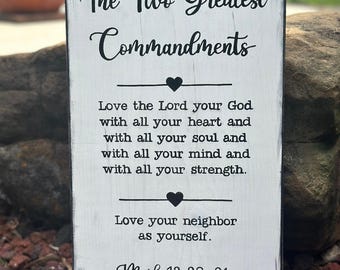 The Two Greatest
Commandments
Love the Lord your God
with all your heart and
with all your soul and
with all your mind and
with all your strength.
Love your neighbor
as yourself.
Mark 12:30-31